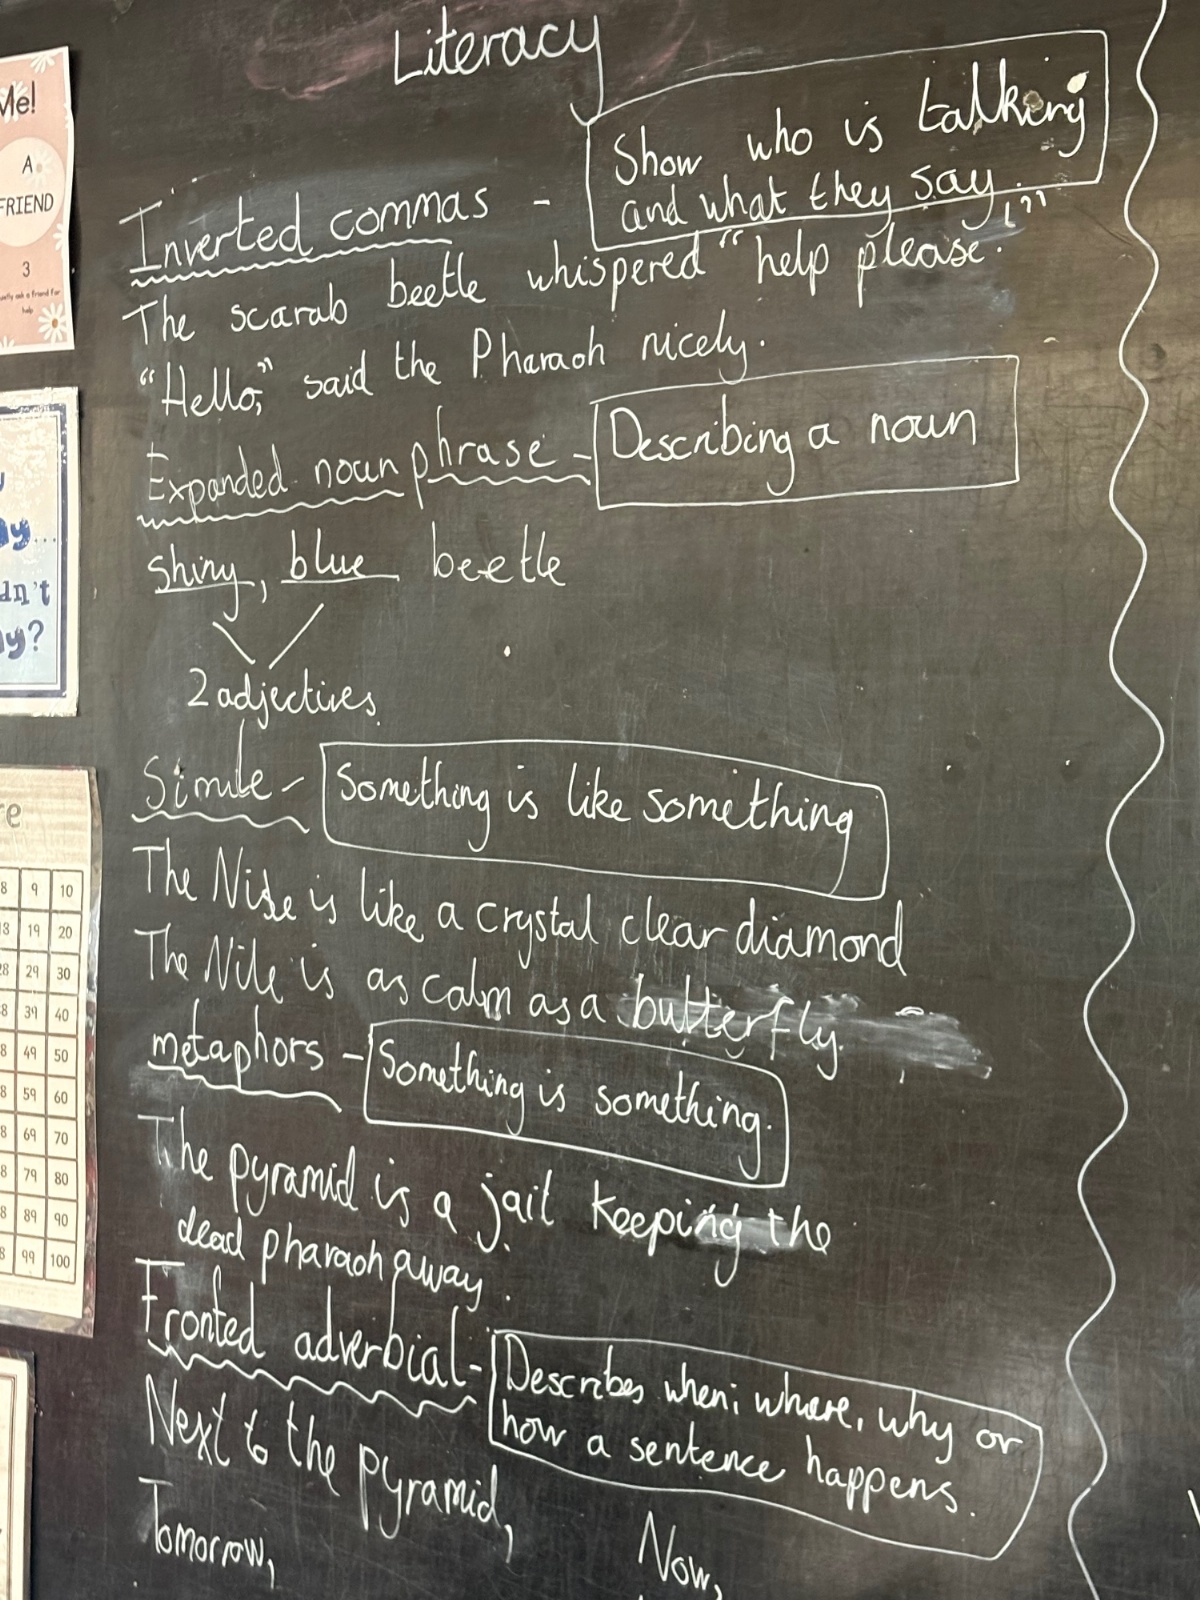 Literacy
Show who is talking
and what they say.
Inverted commas -
The scarab beetle whispered "help please."
"Hello," said the Pharaoh nicely.
Expanded noun phrase - Describing a noun
shiny, blue beetle
2 adjectives
Simile - Something is like something
The Nile is like a crystal clear diamond
The Nile is as calm as a butterfly.
metaphors - Something is something.
The pyramid is a jail keeping the
dead pharaoh away.
Fronted adverbial - Describes when, where, why or
how a sentence happens.
Next to the pyramid,
Tomorrow, Now,
Me!
A
FRIEND
3
help
dn't
y?
re
8 9 10
18 19 20
28 29 30
8 39 40
8 49 50
8 59 60
8 69 70
8 79 80
8 89 90
8 99 100